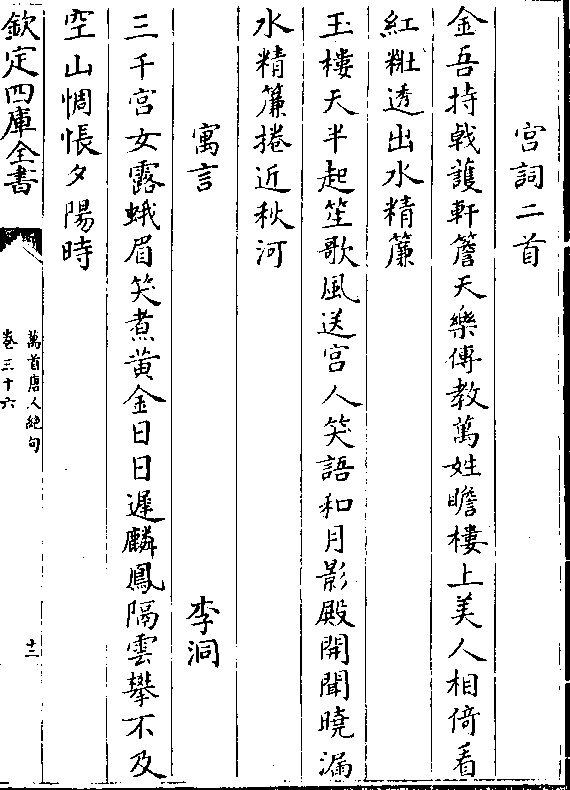 宫詞二首
金吾持㦸護軒簷天樂傳教萬姓瞻樓上美人相倚看
紅粧透出水精簾
玉樓天半起笙歌風送宫人笑語和月影殿開聞曉漏
水精簾捲近秋河
寓言　李洞
三千宫女露蛾眉笑煮黄金日日遲麟鳳隔雲攀不及
空山惆悵夕陽時
欽定四庫全書
萬首唐人絶句
卷三十六
十二